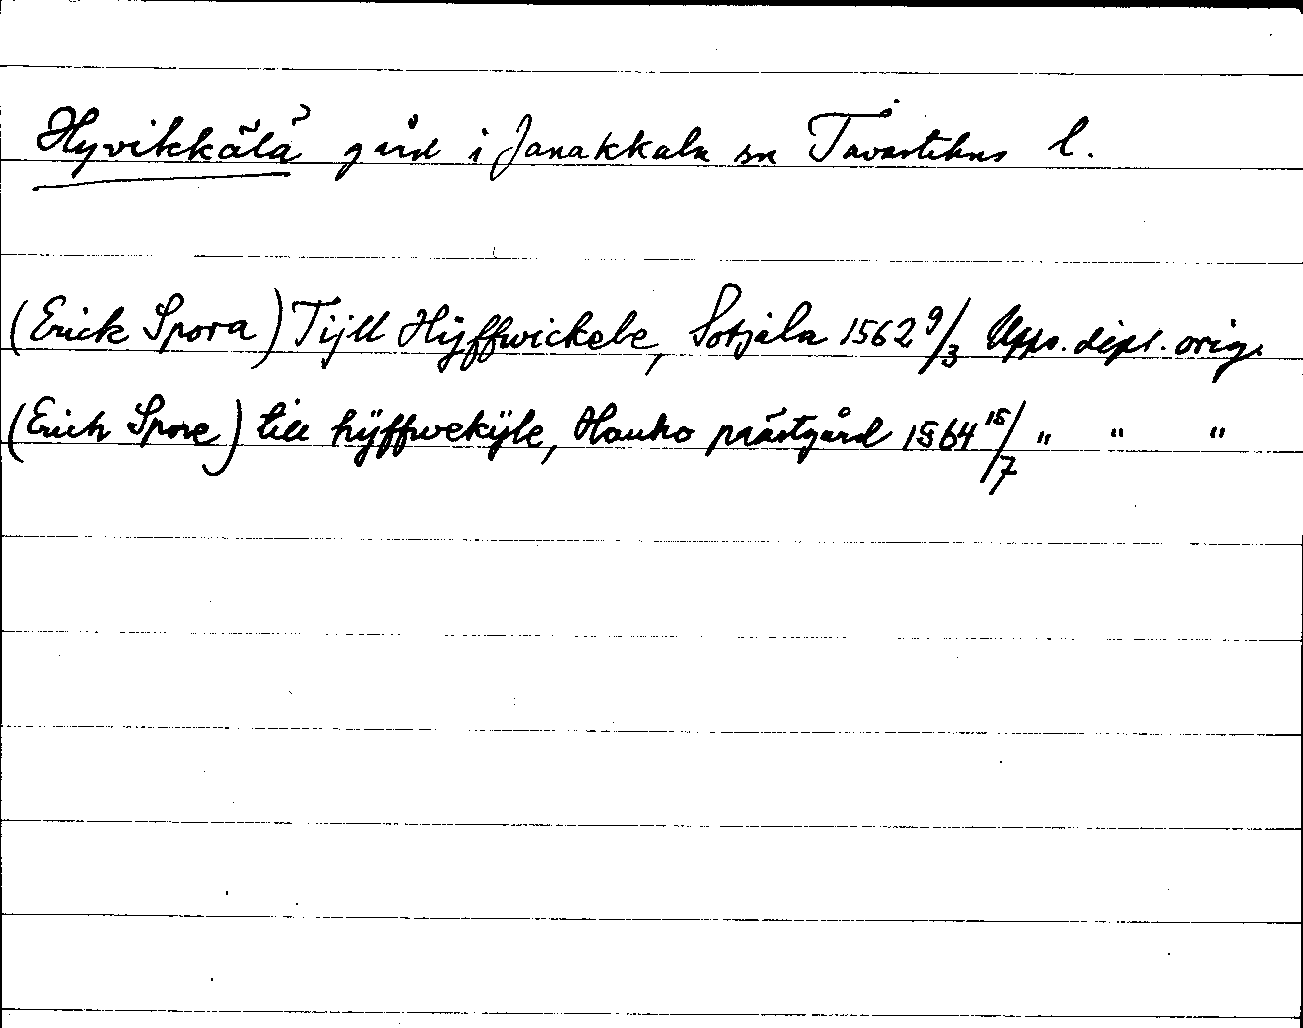 Hyvikkälä gård i Janakkala sn Tavastehus l.
(Erick Spora) Tijll Hÿffwickele, Sotjala 1562 9/3 Upps. dipl. orig.
(Erich Spore) till hÿffwekÿle, Hauho prästgård 1564 15/7 " " "